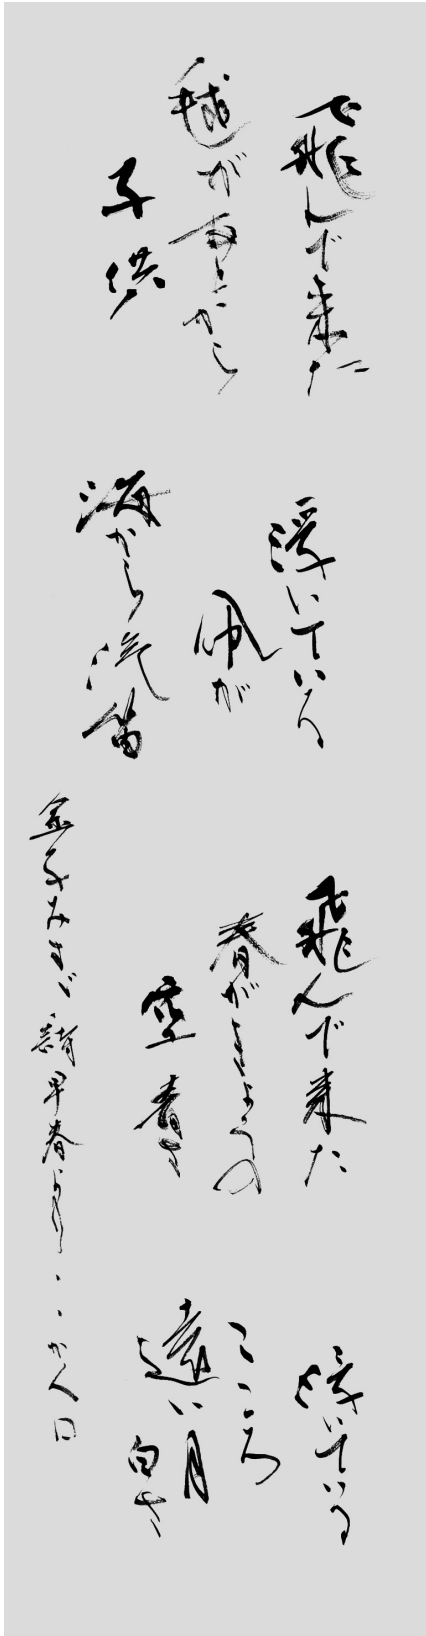 飛んで来た
毬があとから
子供
浮いている
凧が
海から汽笛
飛んで来た
春がきょうの
空青さ
浮いている
こころ
遠い月
白さ
金子みすゞ 詩 早春より